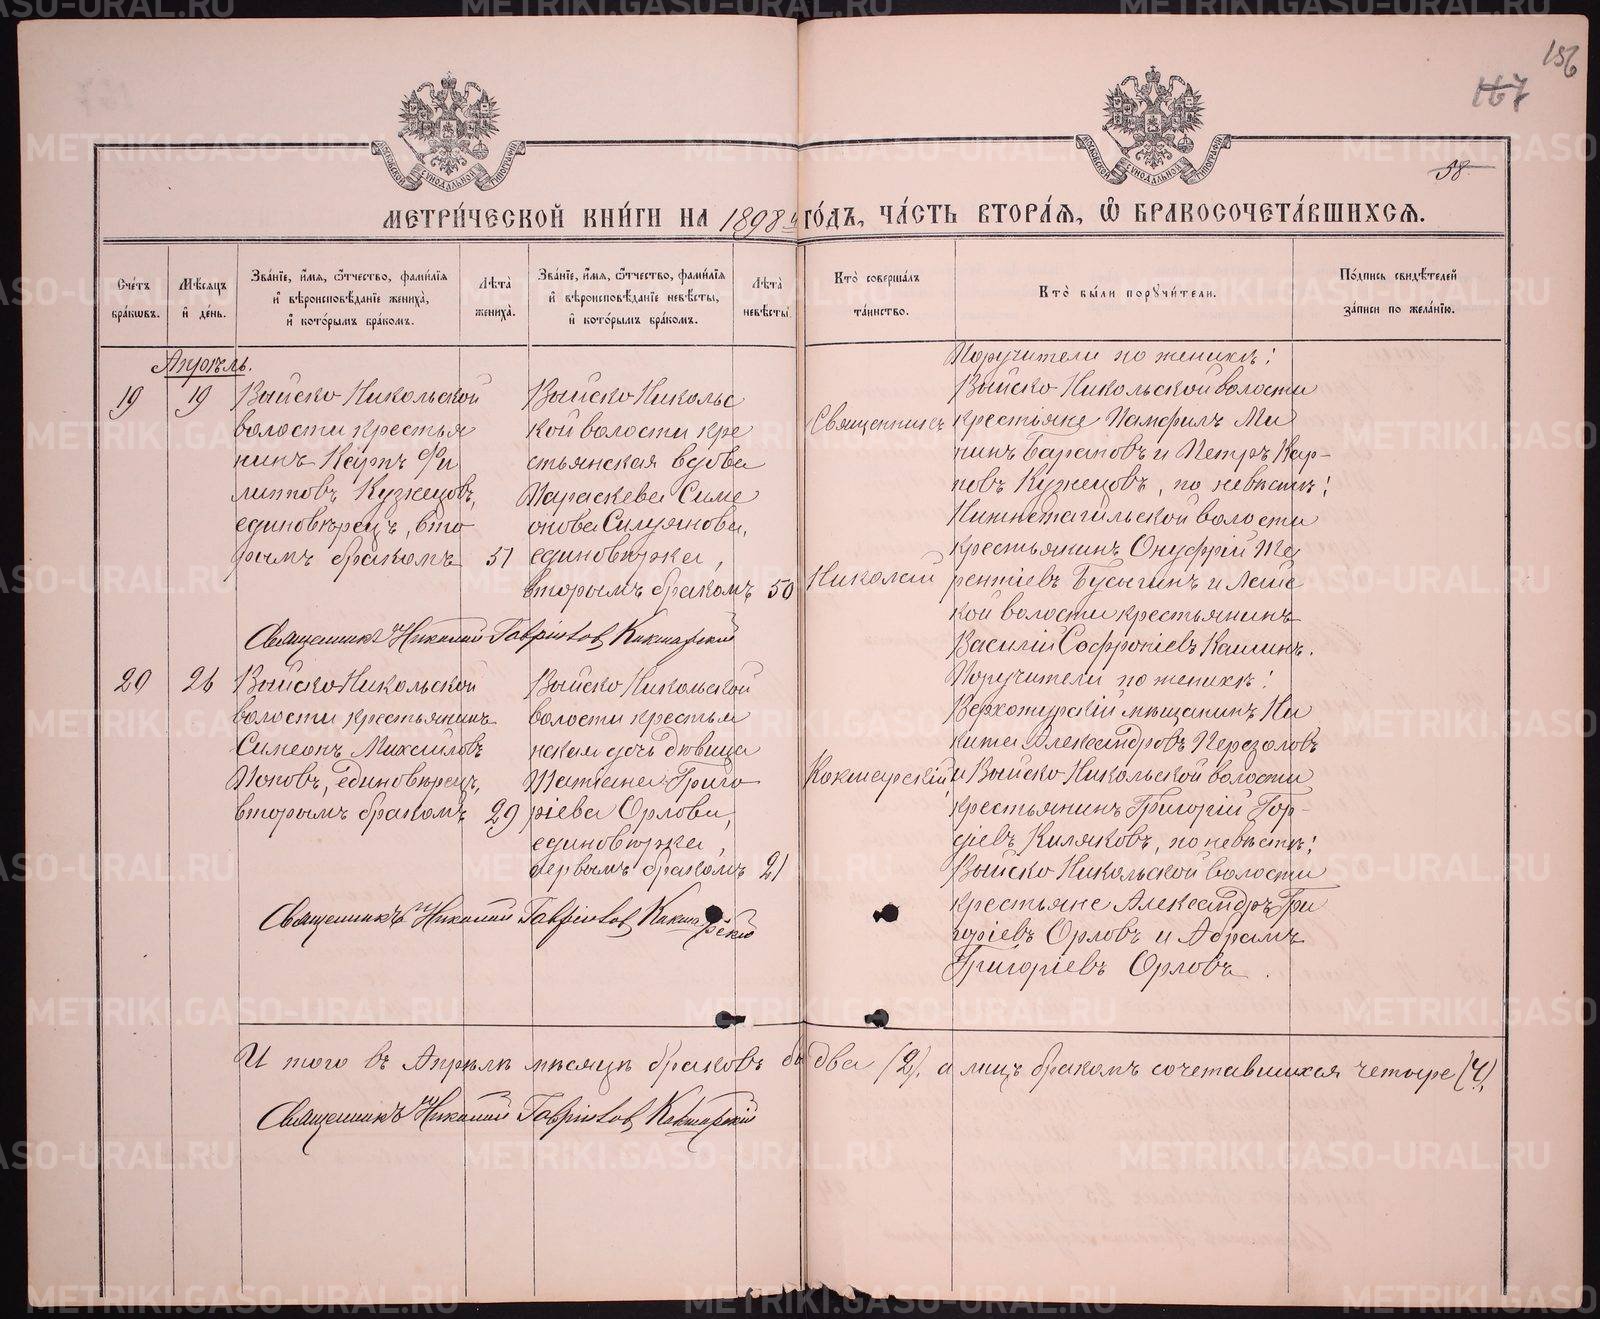 156
167
58
МОСКОВСКОЙ СѴНОДАЛЬНОЙ ТИПОГРАФІИ
МОСКОВСКОЙ СѴНОДАЛЬНОЙ ТИПОГРАФІИ
МЕТРИ́ЧЕСКОЙ КНИ́ГИ НА 1898 й ГО́ДЪ, ЧА́СТЬ ВТОРА́Я, Ѽ БРАКОСОЧЕТА́ВШИХСЯ.
Сче́тъ бра́кѡвъ.
Мѣ́сяцъ и҆ де́нь.
Зва́нїе, и҆́мя, ѻ҆́тчество, фами́лїя и҆ вѣроисповѣ́данїе жениха̀, и҆ кото́рымъ бра́комъ.
Лѣ́та жениха̀.
Зва́нїе, и҆́мя, ѻ҆́тчество, фами́лїя и҆ вѣроисповѣ́данїе невѣ́сты, и҆ кото́рымъ бра́комъ.
Лѣ́та невѣ́сты.
Кто̀ соверша́лъ та́инство.
Кто̀ бы́ли порꙋчи́тели.
По́дпись свидѣ́телей за́писи по жела́нїю.
Апрѣль.
19
19
Выйско Никольской
волости крестья
нинъ Карпъ Фи
липповъ Кузнецовъ,
единовѣрецъ, вто
рымъ бракомъ
51
Выйско Никольс
кой волости кре
стьянская вдова
Параскева Симе
онова Силуянова,
единовѣрка,
вторымъ бракомъ
50
Священникъ
Николай
Кокшарскій
Поручители по женихѣ:
Выйско Никольской волости
крестьяне Памфилъ Ми
нинъ Барановъ и Петръ Кар-
повъ Кузнецовъ, по невѣстѣ:
Нижнетагильской волости
крестьянинъ Онуфрій Те
рентіевъ Бусыгинъ и Лайс
кой волости крестьянинъ
Василій Софроніевъ Кашинъ.
Священникъ Николай Гавриловъ Кокшарскій
20
26
Выйско Никольской
волости крестьянинъ
Симеонъ Михайловъ
Поповъ, единовѣрецъ,
вторымъ бракомъ
29
Выйско Никольской
волости крестьян
ская дочь дѣвица
Татіана Григо
ріева Орлова,
единовѣрка,
первымъ бракомъ
21
Поручители по женихѣ:
Верхотурскій мѣщанинъ Ни
кита Александровъ Перезоловъ
и Выйско Никольской волости
крестьянинъ Григорій Гор-
діевъ Киляковъ, по невѣстѣ:
Выйско Никольской волости
крестьяне Александръ Гри
горіевъ Орловъ и Абрамъ
Григоріевъ Орловъ.
Священникъ Николай Гавриловъ Кокшарскій
И того въ Апрѣлѣ мѣсяцѣ браковъ два (2), а лицъ бракомъ сочетавшихся четыре (4),
Священникъ Николай Гавриловъ Кокшарскій
METRIKI.GASO-URAL.RU